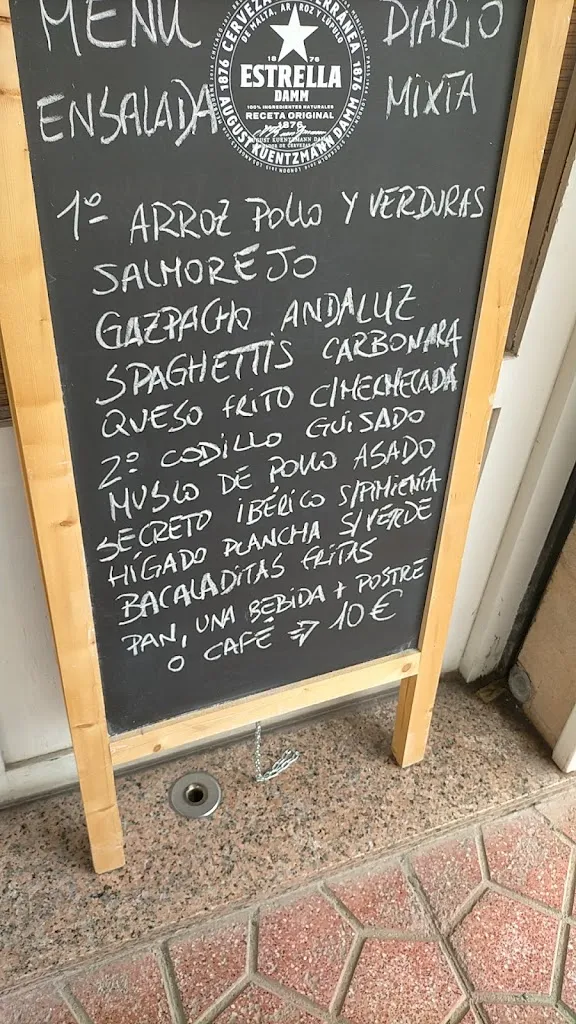 MENU DIARIO
ENSALADA MIXTA
DE MALTA, ARROZ Y LÚPULO
1876
ESTRELLA
DAMM
100% INGREDIENTES NATURALES
RECETA ORIGINAL
1876
AUGUST KUENTZMANN DAMM
1º ARROZ POLLO Y VERDURAS
SALMOREJO
GAZPACHO ANDALUZ
SPAGHETTIS CARBONARA
QUESO FRITO C/MECHELADA
2º CODILLO GUISADO
MUSLO DE POLLO ASADO
SECRETO IBÉRICO S/PIMIENTA
HÍGADO PLANCHA S/VERDE
BACALADITAS FRITAS
PAN, UNA BEBIDA + POSTRE
O CAFÉ ⇒ 10€